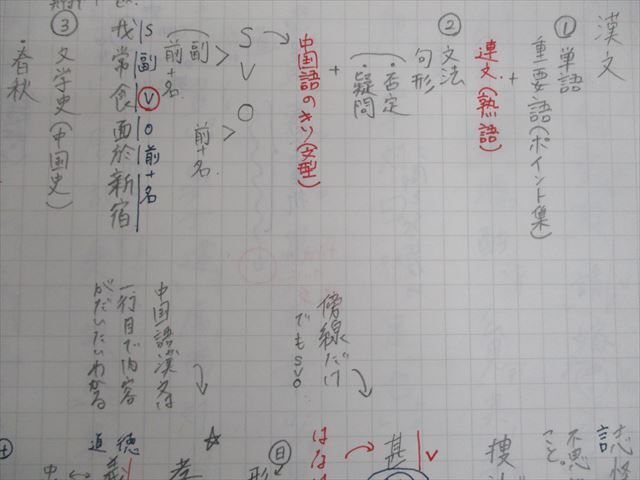 漢文
① 単語
重要語(ポイント集)
+
連文(熟語)
② 文法
句形
・否定
・疑問
+
中国語のきソ(文型)
S V O
副
前+名
前+名
S 副 V O 前+名
我常食面於新宿
③ 文学史(中国史)
・春秋
傍線だけ
でもSVO
中国語漢文は
一行目で内容
がだいたいわかる
志怪
不思
こと。
甚
V
はな
形
☆
徳
道